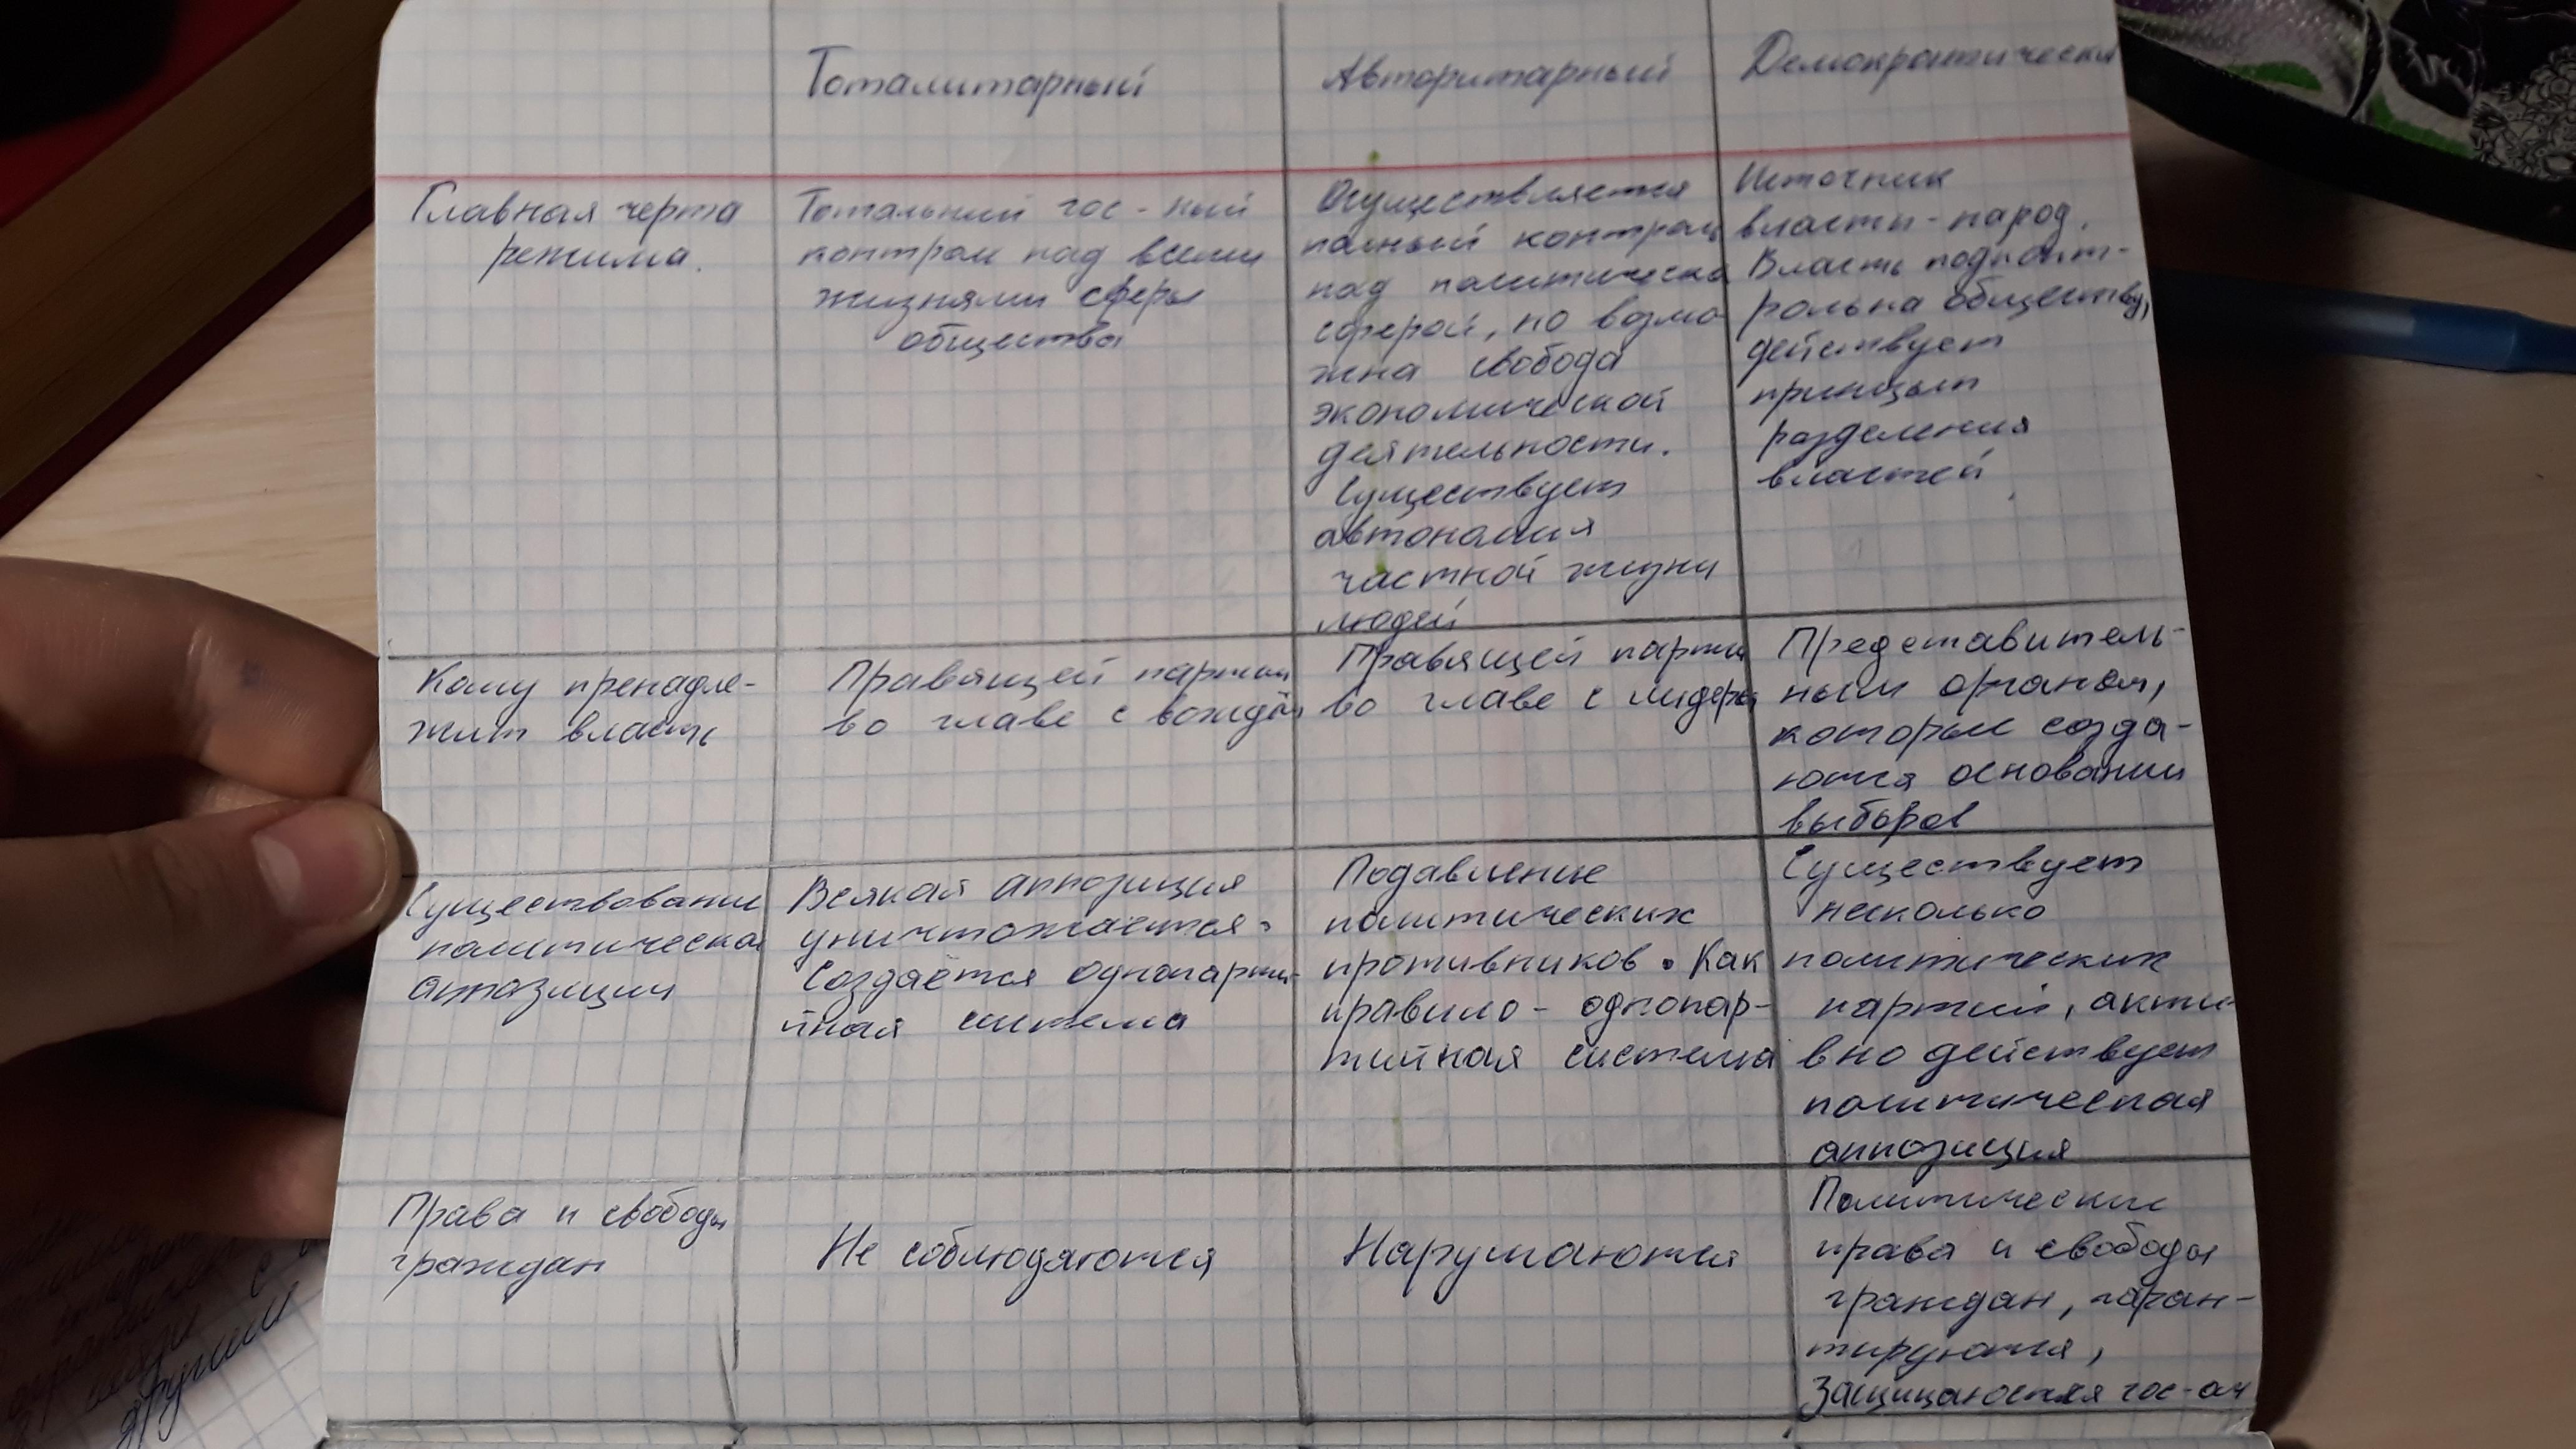 Тоталитарный
Авторитарный
Демократически
Главная черта
режима.
Тотальний гос-ный
контрол над всеми
жизнями сферы
общества
Осуществляется
полный контроль
над политическо
сферой, но возмо
жна свобода
экономической
деятельности.
Существует
автономия
частной жизни
людей
Источник
власти - народ.
Власть подконт-
рольна обществу,
действует
принцып
разделения
властей
Кому пренадле-
жит власть
Правящей партии
во главе с вождём
Правящей парти
во главе с лидеро
Представитель-
ным органом,
которые созда-
ются основании
выборов
Существование
политическоа
аппозиции
Всякая аппозиция
уничтожается.
Создаётся однопарти-
йная система
Подавление
политических
противников. Как
правило - однопар-
тийная система
Существует
несколько
политических
партий, акти-
вно действует
политическая
аппозиция
Права и свободы
граждан
Не соблюдаются
Нарушаются
Политические
права и свободы
граждан, гаран-
тируются,
Защищаются гос-ом
другими